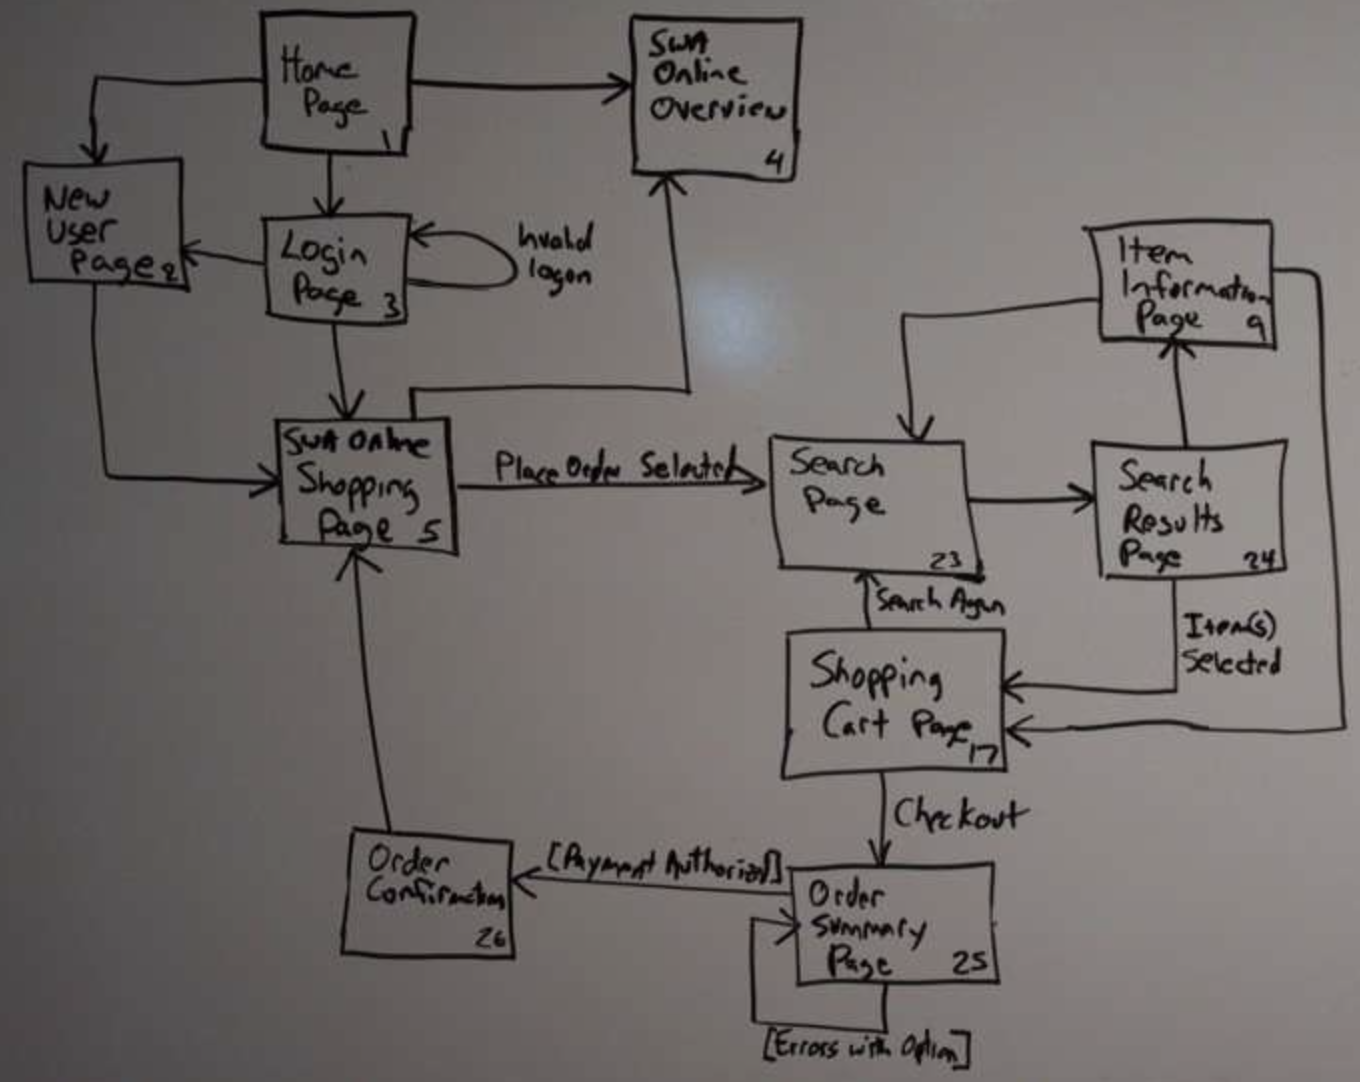 Home
Page
1
SWA
Online
Overview
4
New
User
Page 2
Login
Page 3
Invalid
logon
Item
Information
Page 9
SWA Online
Shopping
Page 5
Place Order Selected
Search
Page
23
Search
Results
Page 24
Search Again
Item(s)
Selected
Shopping
Cart Page
17
Checkout
Order
Confirmation
26
[Payment Authorized]
Order
Summary
Page 25
[Errors with Option]